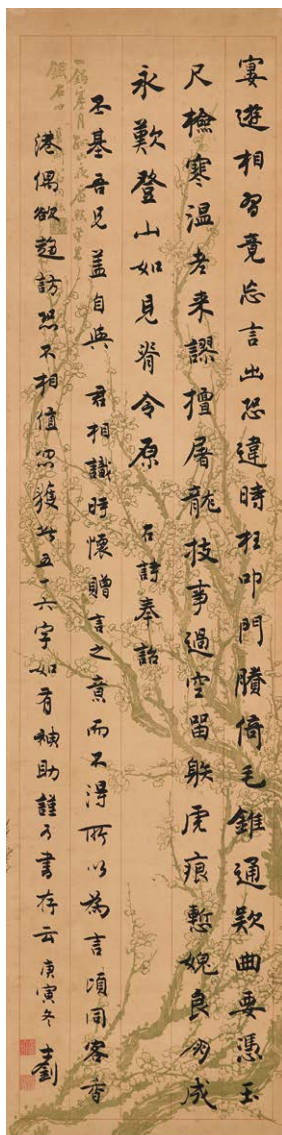 遊相習竟忘言出恐違時枉叩門賸倚毛錐通欵曲要憑玉
尺檢寒温老来謬擅屠龍技事過空留䠶虎痕慙媿良朋成
永歎登山如見脊令原 右詩奉詒
丕基吾兄蓋自與 君相識時懷贈言之意而不得所以為言頃同客香
港偶欲趨訪恐不相值忽獲此五十六字如有神助謹為書存云 庚寅冬 士釗